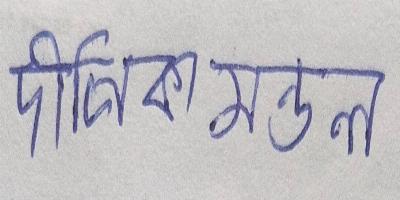 দীপিকা মন্ডল